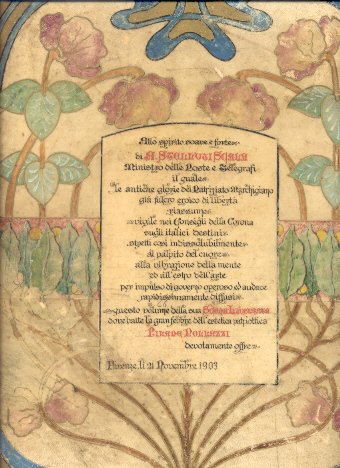 Allo spirito soave e forte
di A. Stelluti Scala
Ministro delle Poste e Telegrafi
il quale
le antiche glorie del Patriziato Marchigiano
già fulcro eroico di libertà
riassume
vigile nei Consigli della Corona
sugli italici destini
stretti così indissolubilmente
al palpito del cuore
alla vibrazione della mente
ed all'estro dell'arte
per impulso di governo operoso ed audace
rapidissimamente diffusi
questo volume della sua
dove batte la gran febbre dell'estetica patriottica
devotamente offre
Firenze, li 21 Novembre 1903